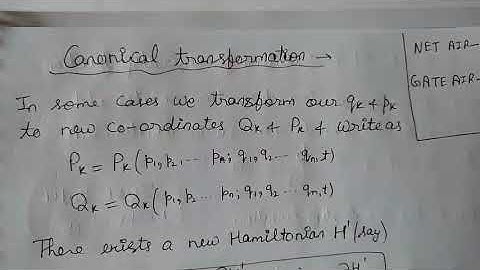 Canonical transformation →
In some cases we transform our qₖ & pₖ
to new co-ordinates Qₖ & Pₖ & write as
Pₖ = Pₖ(p₁, p₂, ... pₙ; q₁, q₂ ... qₙ, t)
Qₖ = Qₖ(p₁, p₂ ... pₙ; q₁, q₂ ... qₙ, t)
There exists a new Hamiltonian H' (say)
∂H'
NET AIR-
GATE AIR-